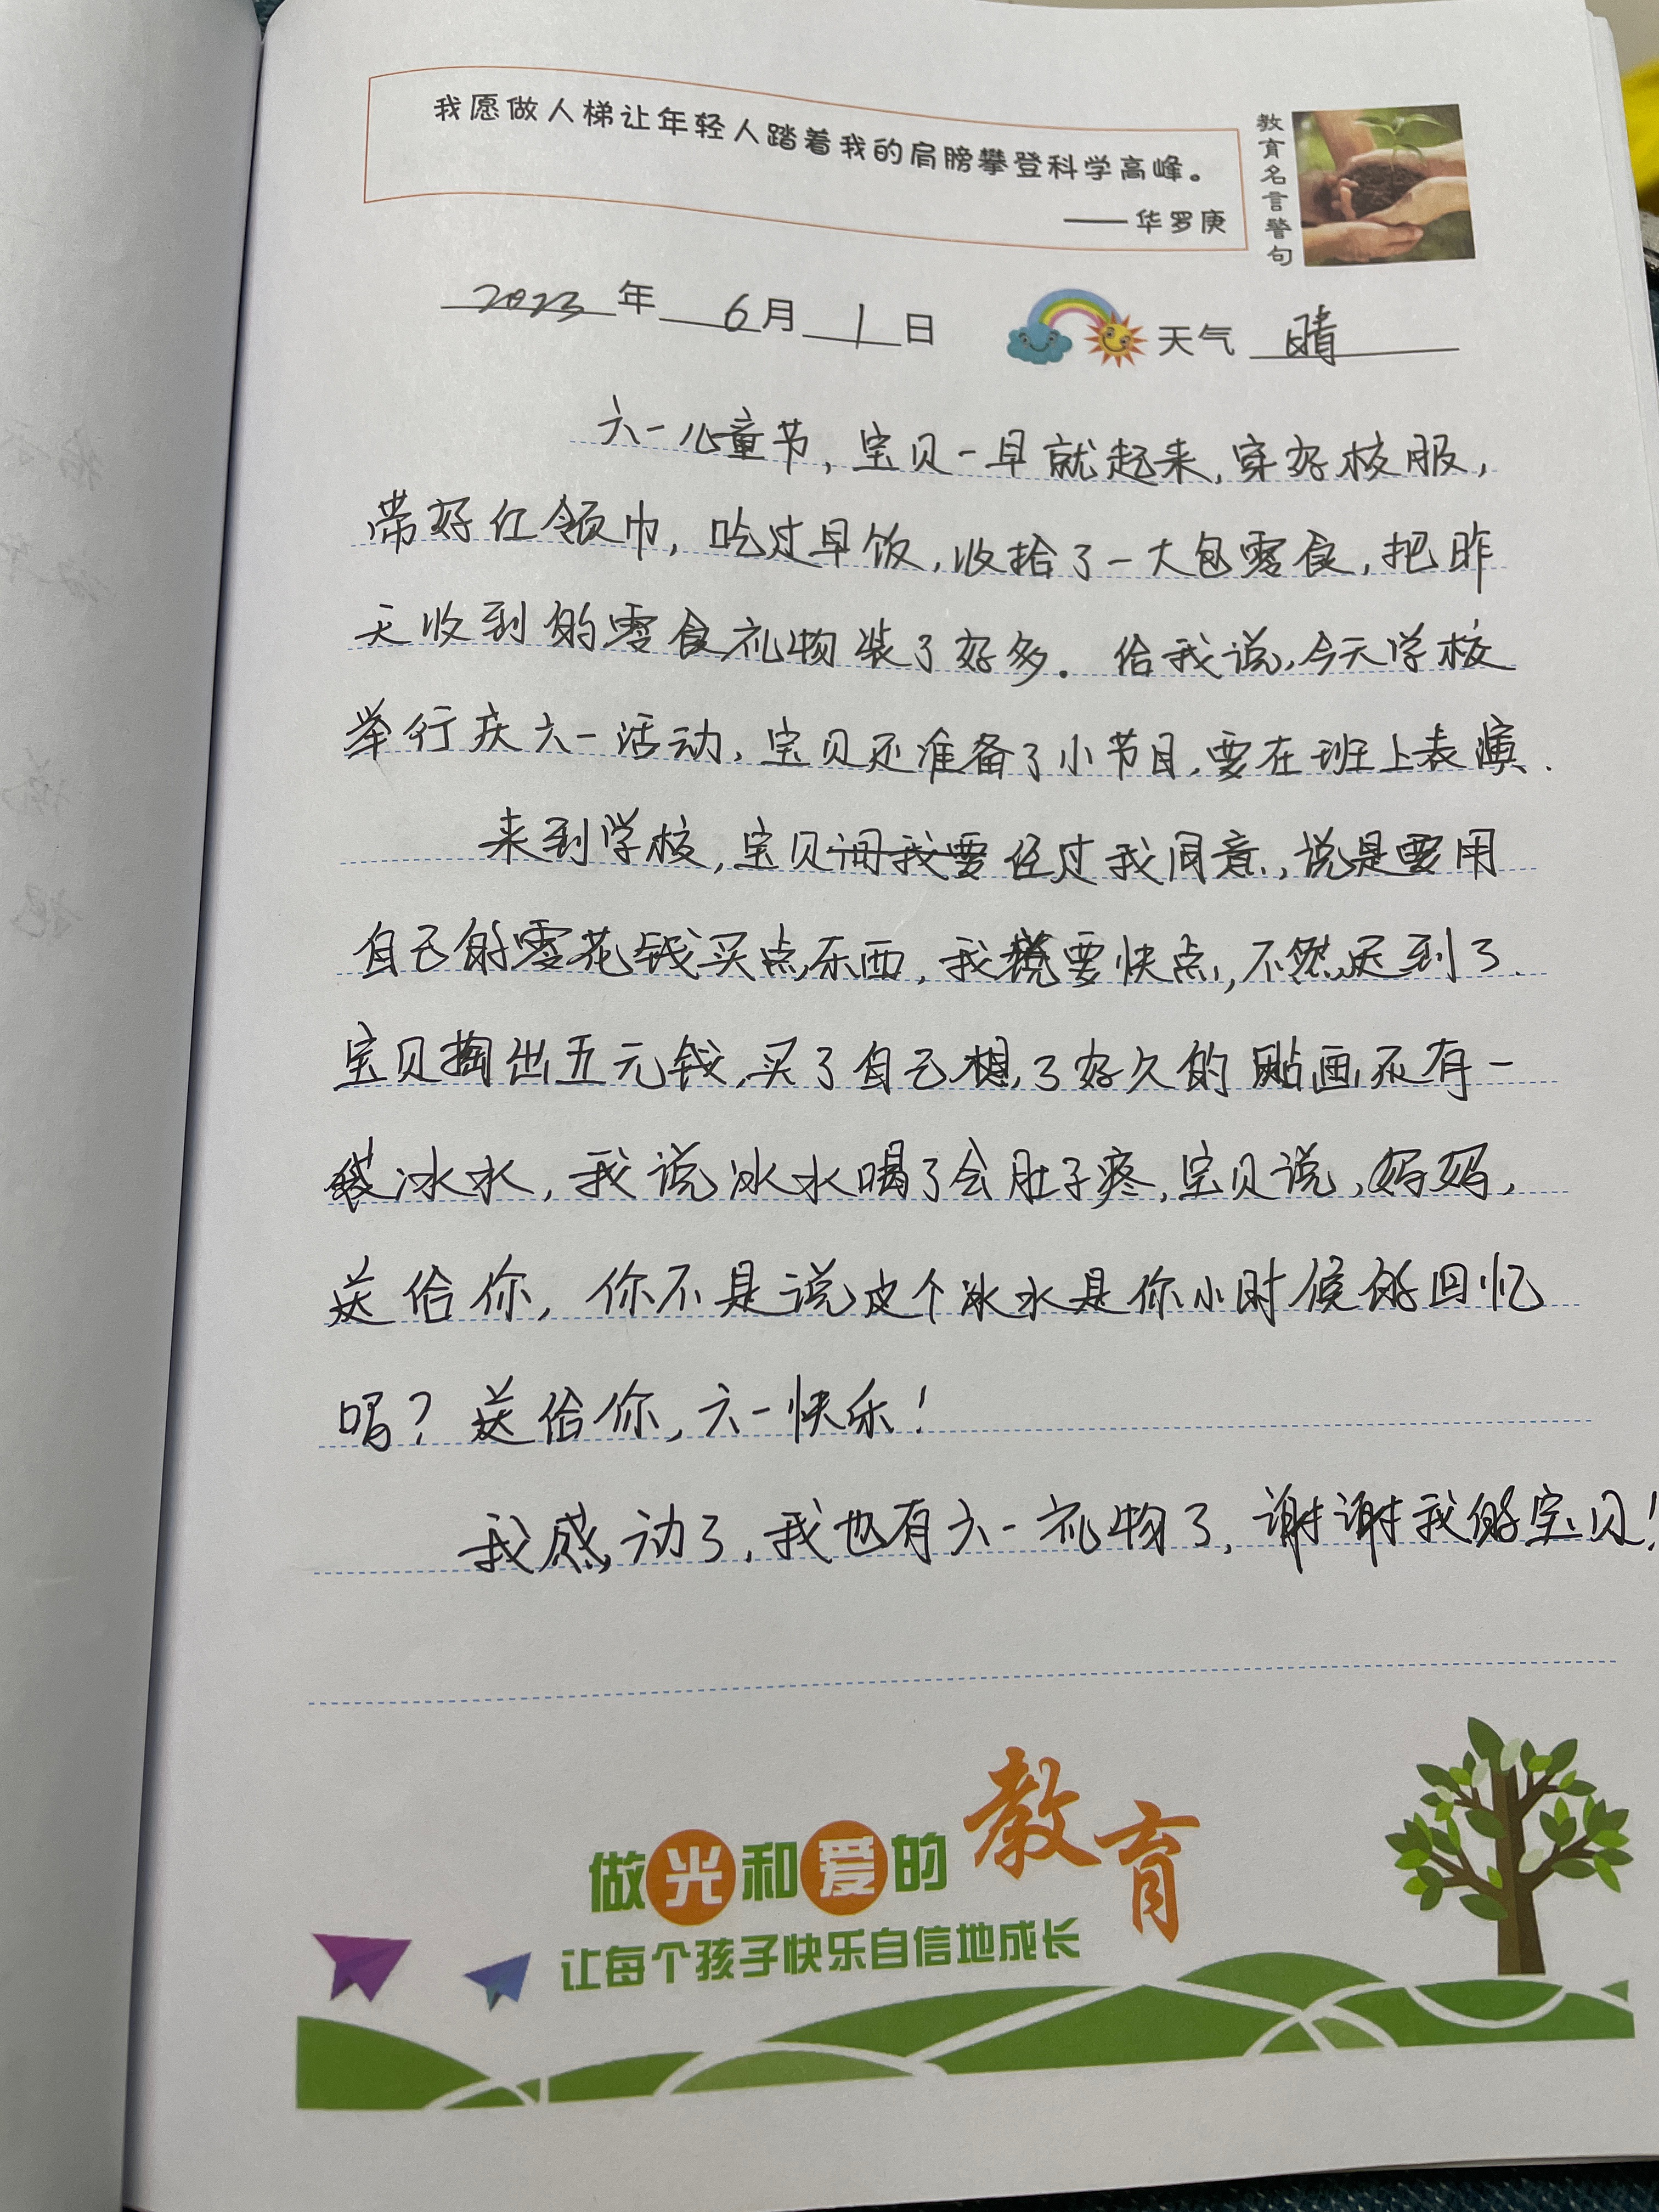 我愿做人梯让年轻人踏着我的肩膀攀登科学高峰。
——华罗庚
教育名言警句
2023年6月1日
天气 晴
六一儿童节,宝贝一早就起来,穿好校服,
带好红领巾,吃过早饭,收拾了一大包零食,把昨
天收到的零食礼物装了好多。给我说,今天学校
举行庆六一活动,宝贝还准备了小节目,要在班上表演.
来到学校,宝贝问我要经过我同意,说是要用
自己的零花钱买点东西,我说要快点,不然迟到了.
宝贝掏出五元钱,买了自己想了好久的贴画,还有一
冰水,我说冰水喝了会肚子疼,宝贝说,妈妈,
送给你,你不是说这个冰水是你小时候的回忆
吗?送给你,六一快乐!
我感动了,我也有六一礼物了,谢谢我的宝贝!
做光和爱的教育
让每个孩子快乐自信地成长